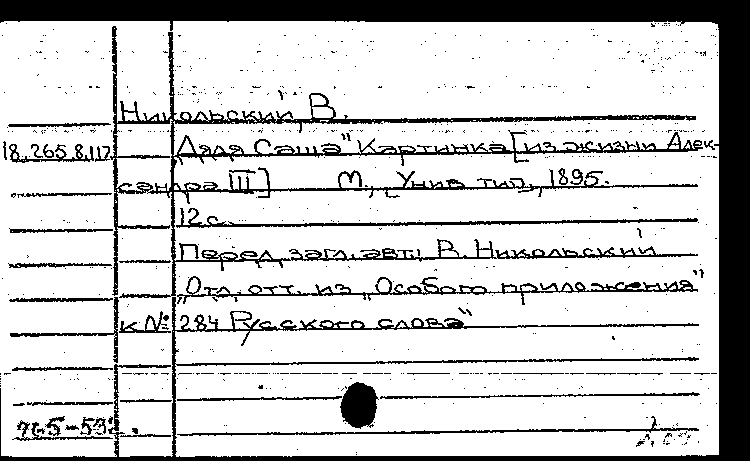 Никольский, В.
18.265.8.117 „Дядя Саша" Картинка [из жизни Алек-
сандра III] М., „Унив. тип., 1895.
12 с.
Перед загл. авт.: В. Никольский
„Отд. отт. из „Особого приложения"
к № 284 Русского слова"